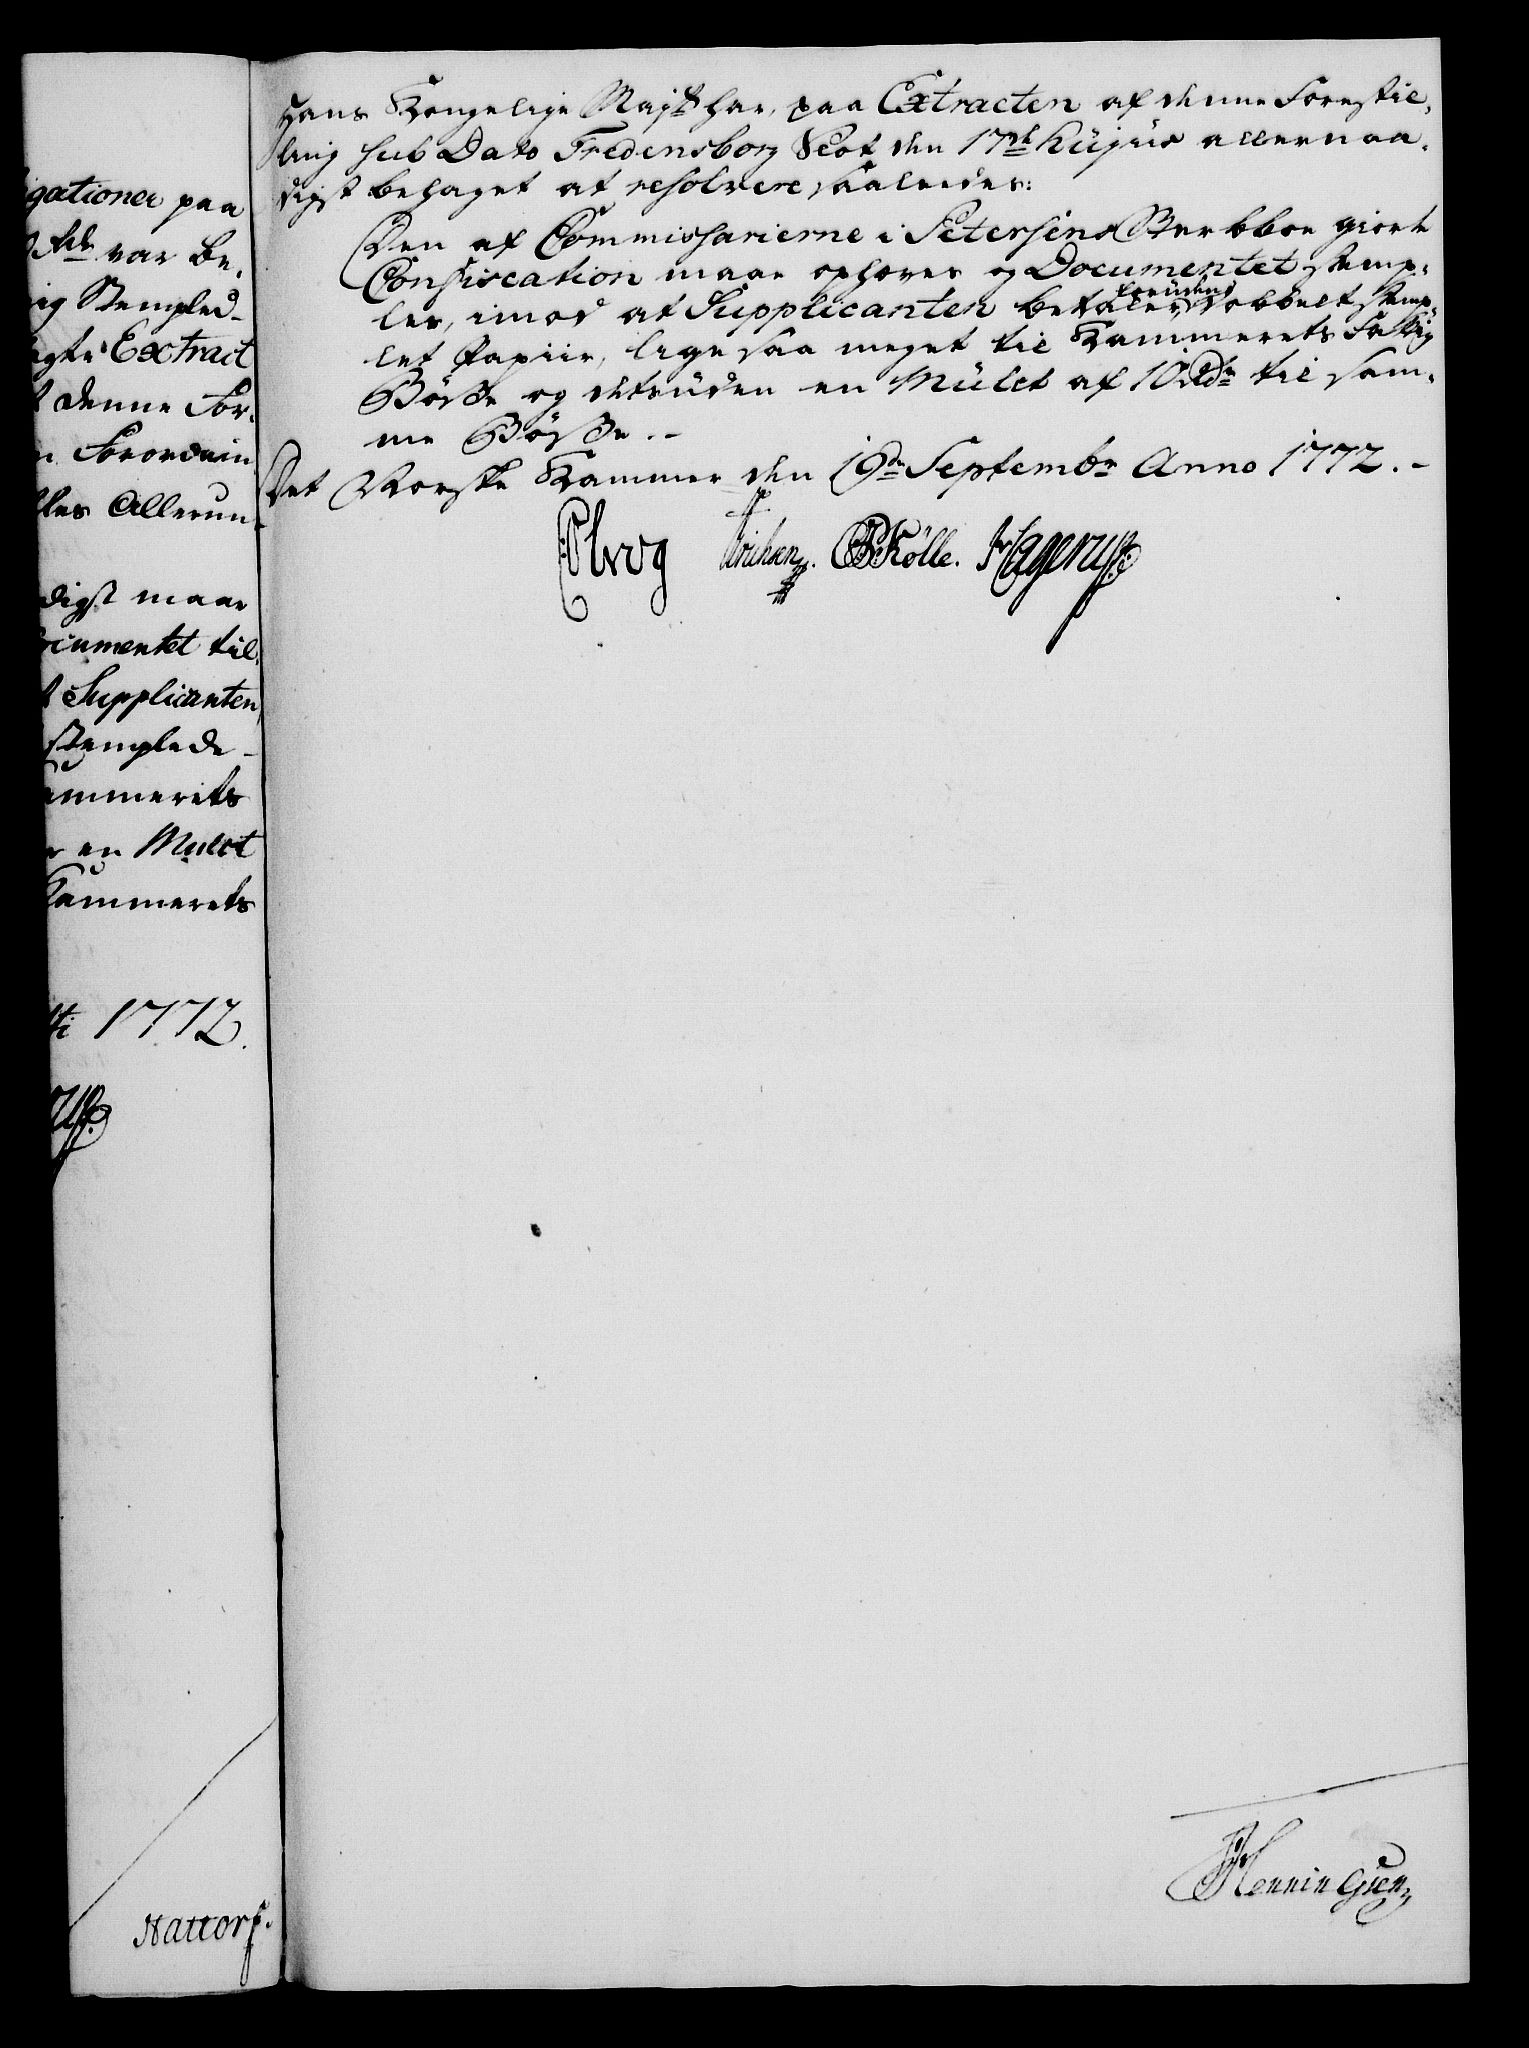 gationer paa
var be-
ig Stempled
Extract
denne For-
n Forordnin
lles Allerun-
digst maae
ocumentet til-
t Supplicanten,
Stemplede
ammerets
r en Mulct
Kammerets
ti 1772.
Hattorf.
Hans Kongelige Majst har, paa Extracten af denne Forestil-
ling sub Dato Fredensborg Slot den 17de hujus allernaa-
digst behaget at resolvere saaledes:
Den af Commissarierne i Petersens Sterbboe giorte
Confiscation maae ophæves og Documentet stemp-
les, imod at Supplicanten betaler foruden dobbelt stemp-
let Papiir, ligesaa meget til Kammerets Fattig
Bösse og desuden en Mulct af 10 Rdr til sam-
me Bösse.-
Det Norske Kammer den 19de Septembr Anno 1772.-
Holle. Hagerup.
Henningsen